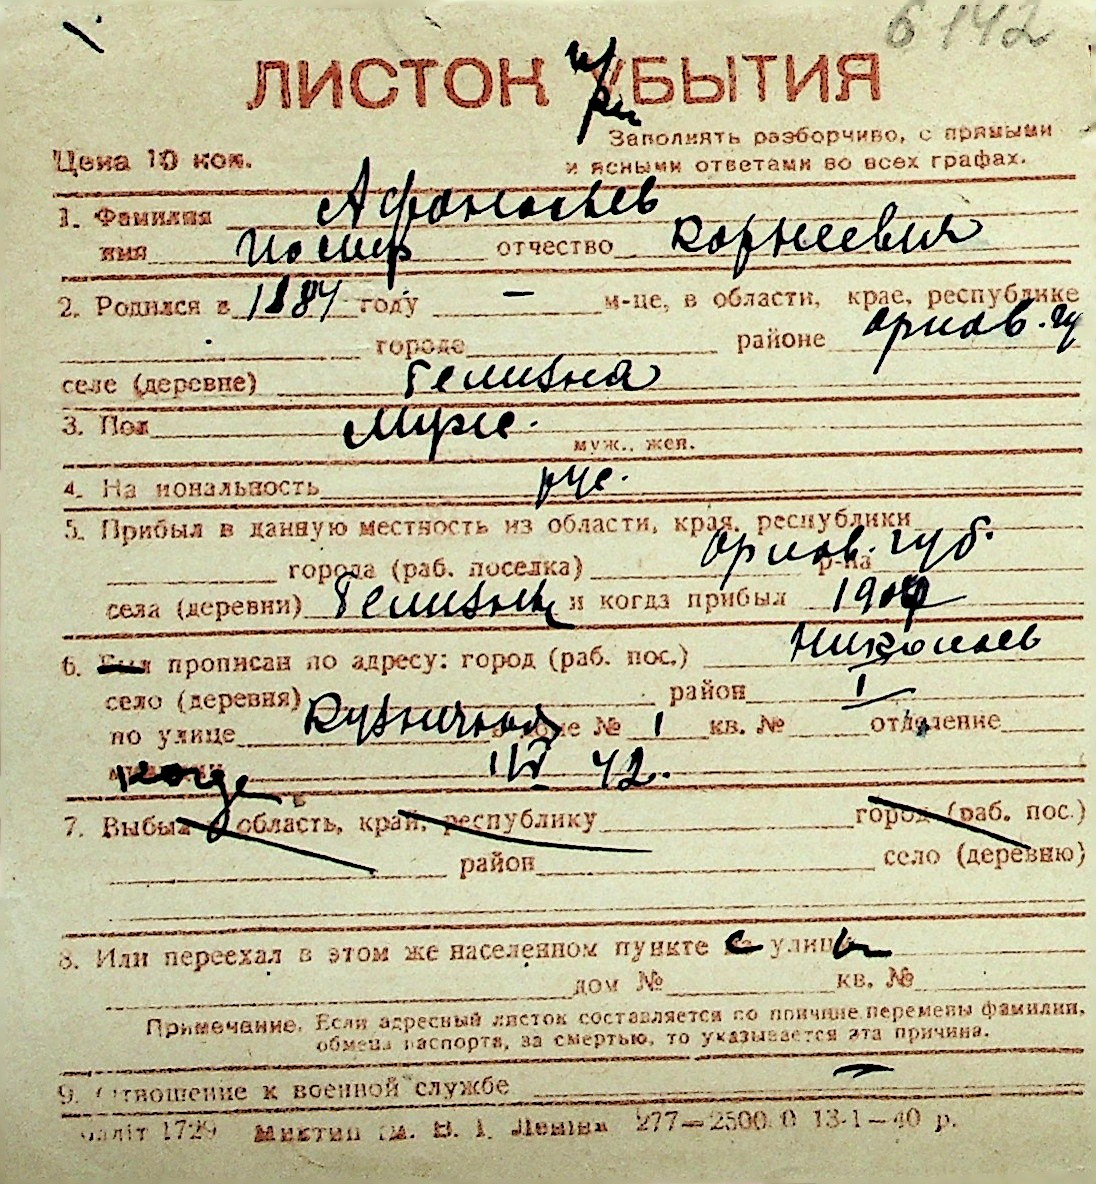 6 142
ЛИСТОК При УБЫТИЯ
Заполнять разборчиво, с прямыми
Цена 10 коп. и ясными ответами во всех графах.
1. Фамилия Афанасьев
имя Иосиф отчество Корнеевич
2. Родился в 1884 году — м-це, в области, крае, республике
городе районе Орлов. гу
селе (деревне) Гелизна
3. Пол Муже.
муж., жен.
4. На иональность рус.
5. Прибыл в данную местность из области, края, республики
города (раб. поселка) Орлов. губ. р-на
села (деревни) и когда прибыл 1909
6. Был прописан по адресу: город (раб. пос.) Николаев
село (деревня) район I
по улице Кузничная доме № 1 кв. № отделение
милиции когда 1/V 42.
7. Выбыл в область, край, республику город (раб. пос.)
район село (деревню)
8. Или переехал в этом же населенном пункте с улицы
дом № кв. №
Примечание. Если адресный листок составляется по причине перемены фамилии,
обмена паспорта, за смертью, то указывается эта причина.
9. Отношение к военной службе —
лліт 1729 Миктип ім. В. І. Леніна 277—2500.0 13-1—40 р.